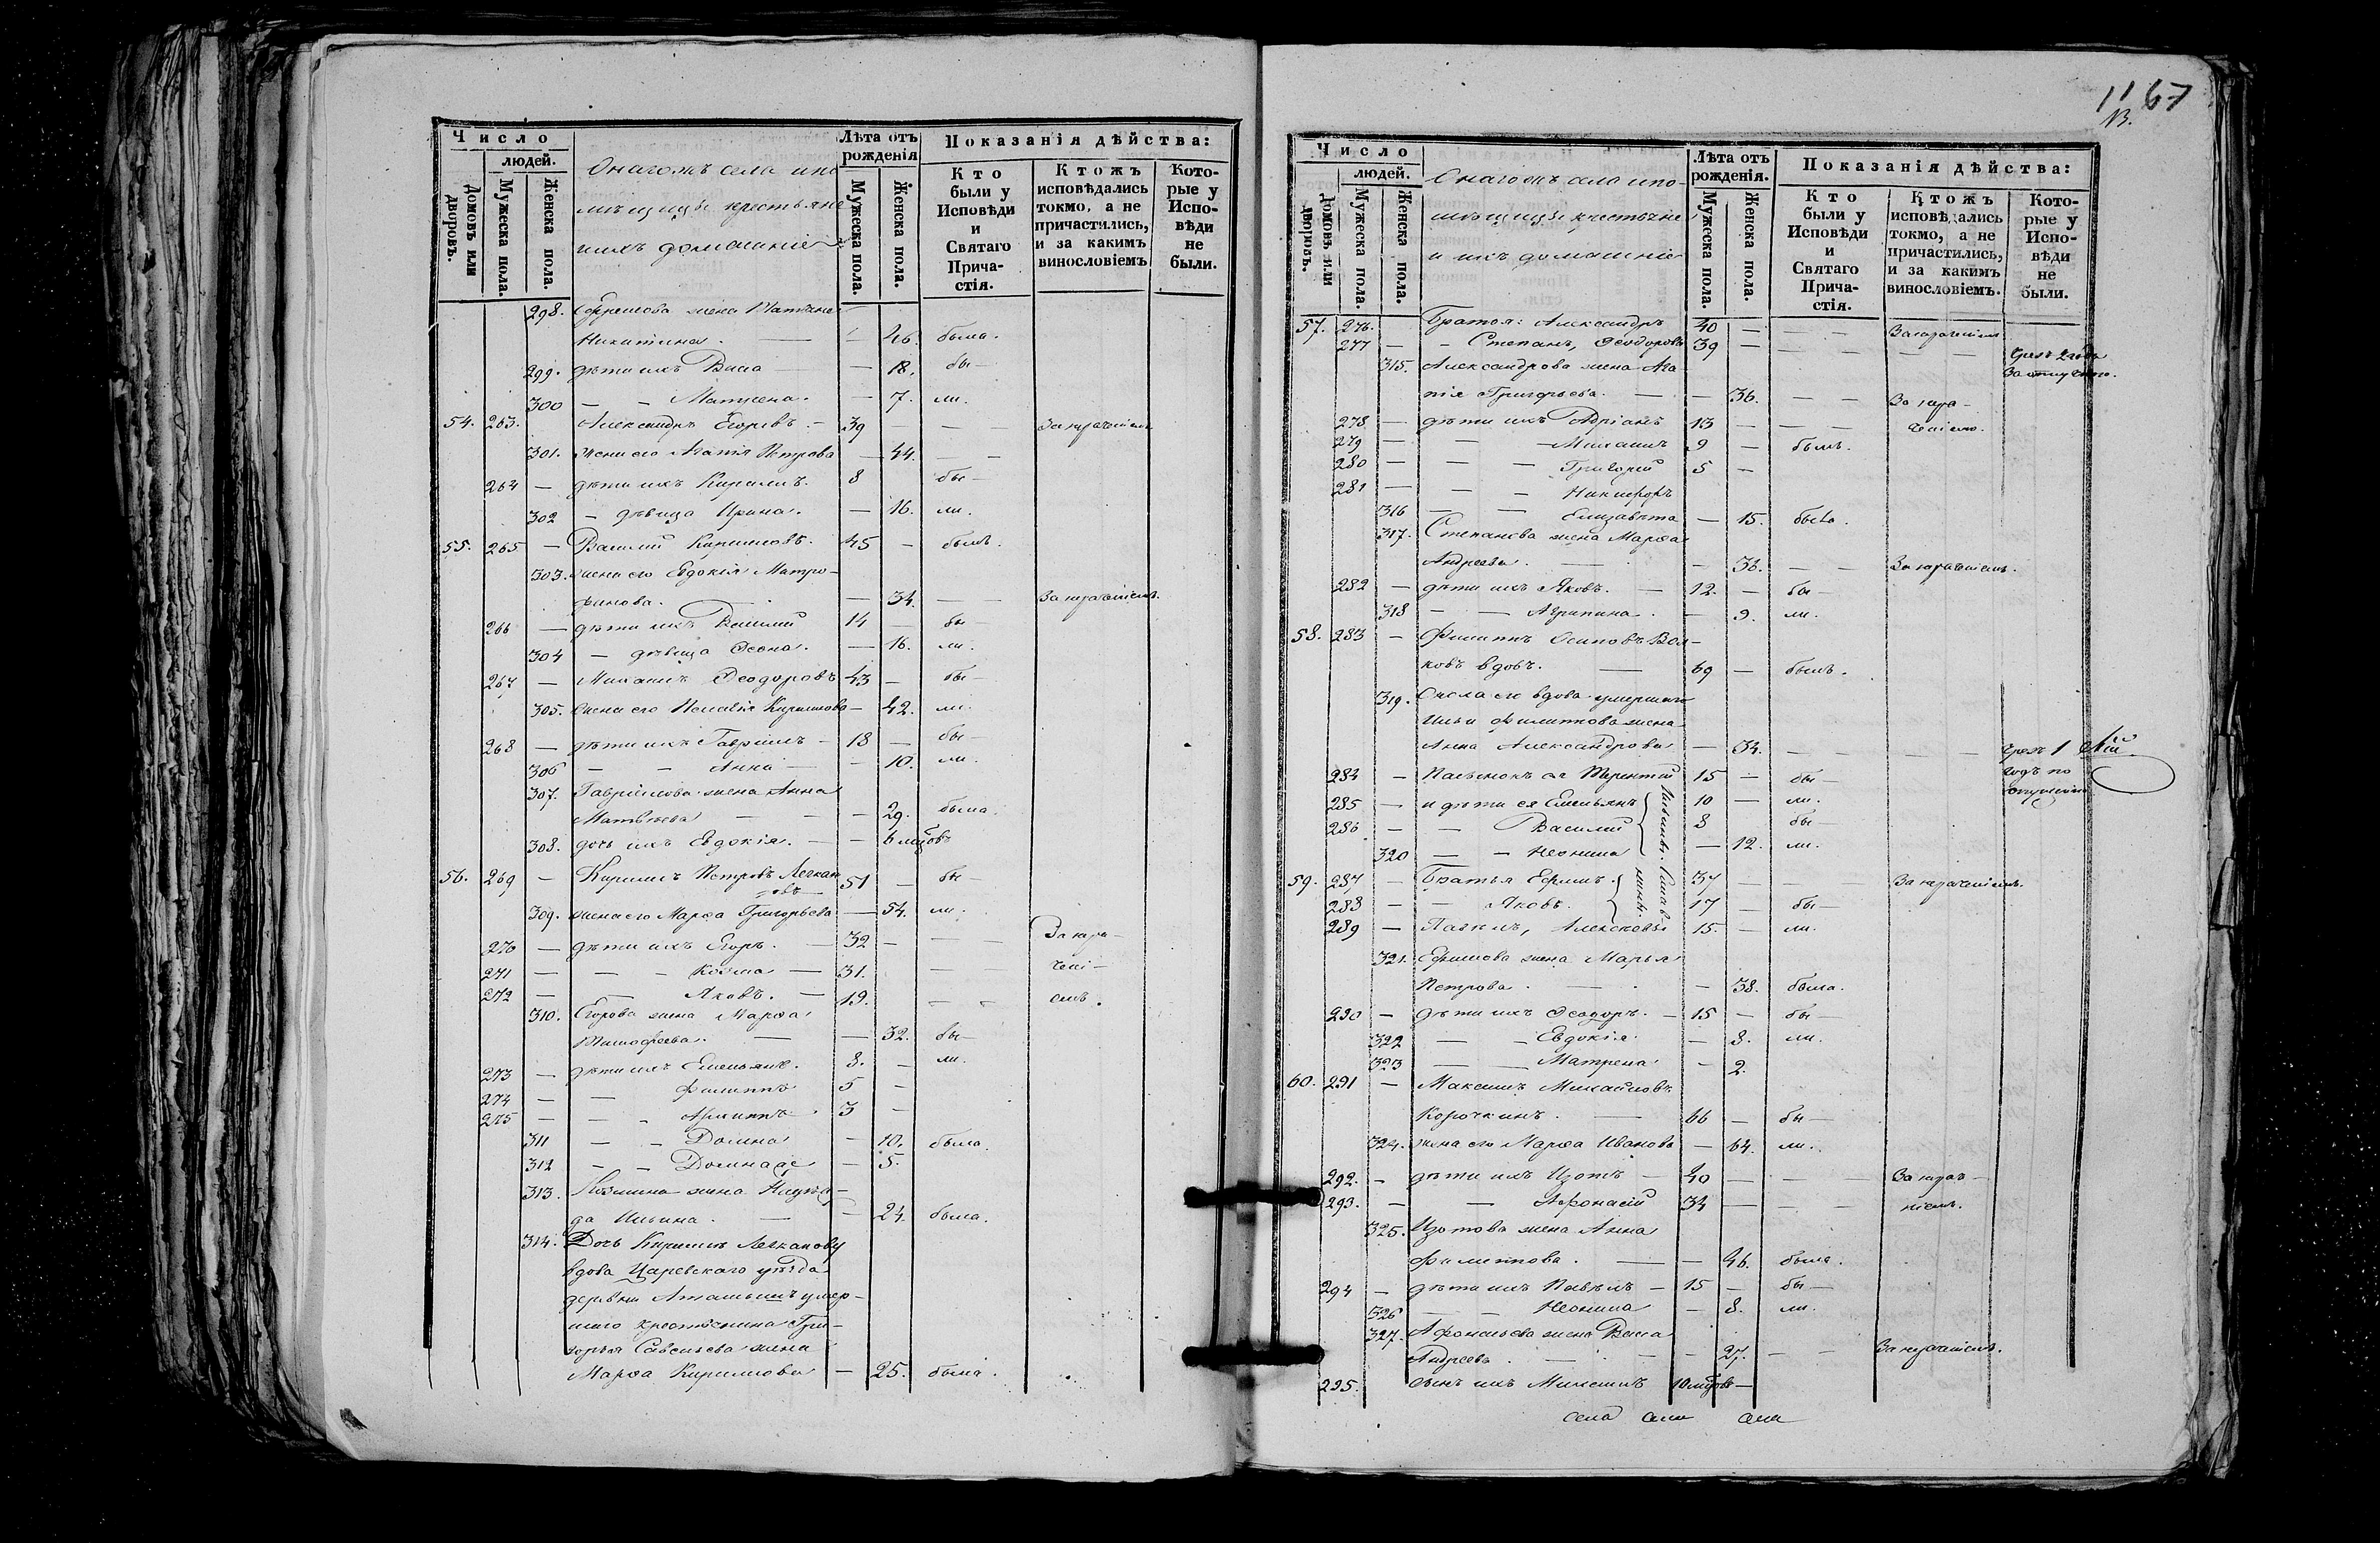 Число
людей.
Домовъ или дворовъ.
Мужеска пола.
Женска пола.
Онагожъ села и по-
мѣщицы крестьяне
и ихъ домашніе
Лѣта отъ рожденія
Мужеска пола.
Женска пола.
Показанія дѣйства:
Кто были у Исповѣди и Святаго Причастія.
Ктожъ исповѣдались токмо, а не причастились, и за какимъ винословіемъ
Которые у Исповѣди не были.
298. Ефремова жена Татьяна
Никитина. — 46. была.
299. дѣти ихъ Васса — 18. бы—
300 — — Матрена. — 7. ли.
54. 263. Александръ Егоровъ. — 39 — — — За
301. жена его Агатія Петрова — 44. — —
264 — дѣти ихъ Кирилъ. 8 бы—
302 — дѣвица Ирина. — 16. ли.
55. 265 — Василій Кириловъ. 45 — былъ.
303. жена его Евдокія Митро-
фанова. — 34. — — За
266 — дѣти ихъ Василій 14 — бы—
304 — дѣвица — 16. ли.
267 — Михаилъ Ѳеодоровъ 43 — бы—
305. жена его Пелагія Кирилова — 42. ли.
268 — дѣти ихъ Гавріилъ — 18 — бы—
306 — — Анна — — 10. ли.
307. Гавріилова жена Анна
Матвѣева — — — 29. была.
308. дочь ихъ Евдокія. — — 6 мцовъ
56. 269 — Кирилъ Петровъ
51 — бы—
309. жена его Марѳа Григорьева — 54. ли.
270 — дѣти ихъ Егоръ. — 32 — — — За
271 — — — Козма — 31. —
272 — — Яковъ. — 19. — —
310. Егорова жена Марѳа
Тимофеева. — — 32. бы—
273 — дѣти ихъ Емельянъ. 8. — ли.
274 — — Филиппъ 5 —
275 — — 3 —
311 — — Домна — 10. была.
312 — — — 5.
313. Козмина жена
Ильина. — — 24. была.
314. Дочь Кирила
вдова Царевскаго уѣзда
деревни умер-
шаго крестьянина Гри-
горья Савельева жена
Марѳа Кирилова — 25. была.
1167
13.
Число
людей.
Домовъ или дворовъ.
Мужеска пола.
Женска пола.
Онагожъ села и по-
мѣщицы крестьяне
и ихъ домашніе
Лѣта отъ рожденія.
Мужеска пола.
Женска пола.
Показанія дѣйства:
Кто были у Исповѣди и Святаго Причастія.
Ктожъ исповѣдались токмо, а не причастились, и за какимъ винословіемъ.
Которые у Исповѣди не были.
57. 276. Братья: Александръ 40 — — За
277 — — Степанъ, Ѳеодоровы 39 — — — —
315. Александрова жена Ага-
пія Григорьева. — — 36. — — За
278 — дѣти ихъ Адріанъ 13 — — —
279 — — Михаилъ 9 — былъ.
280 — — — Григорій 5 —
281 — — — Никифоръ
316 — — Елизавета — 15. была.
317. Степанова жена Марѳа
Андреева. — — 36. — — За
282 — дѣти ихъ Яковъ. — 12. — бы
318 — — Агрипина. — 9. ли.
58. 283 — Филиппъ Осиповъ Вол-
ковъ вдовъ. — 69 — былъ.
319. Сноха его вдова умершаго
Ильи Филиппова жена
Анна Александрова — 34. — — — чрезъ 1
годъ по
284 — Пасынокъ ея Терентій 15 — бы—
285 — и дѣти ея Емельянъ 10 — ли.
286 — — Василій 8 бы—
320 — — Неонила — 12. ли.
59. 287 — Братья Ефимъ. 37 — — — За
288 — — Яковъ. 17 — бы—
289 — Павелъ, Алексѣевы 15. — ли.
321. Ефимова жена Марья
Петрова. — — 38. была.
290 — дѣти ихъ Ѳеодоръ. — 15 — бы—
322 — — Евдокія — 8. ли.
323 — Матрена — 2.
60. 291 — Максимъ Михайловъ
Корочкинъ. — 66 — бы—
324. жена его Марѳа Иванова — 64. ли.
292. — дѣти ихъ Изотъ — 40 — — — За
293. — — Афонасій 34 — — —
325. Изотова жена Анна
Филиппова. — — 46. была.
294 — дѣти ихъ Павелъ — 15 — бы—
326 — — Неонила — 8. ли.
327. Афонасьева жена Васса
Андреева. — — — 27. — — За
295. сынъ ихъ 10 мцовъ —